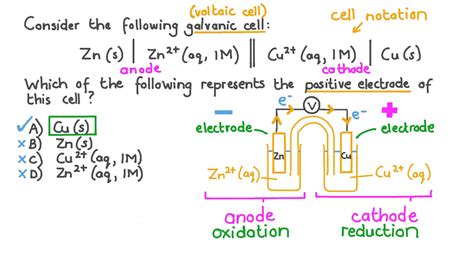 (voltaic cell)
Consider the following galvanic cell:
cell notation
Zn (s) | Zn²⁺ (aq, 1M) || Cu²⁺ (aq, 1M) | Cu (s)
anode
cathode
Which of the following represents the positive electrode of
this cell?
✓ A) Cu (s)
× B) Zn (s)
× C) Cu²⁺ (aq, 1M)
× D) Zn²⁺ (aq, 1M)
−
e⁻
V
e⁻
+
electrode
electrode
Zn
Cu
Zn²⁺ (aq)
Cu²⁺ (aq)
anode
oxidation
cathode
reduction